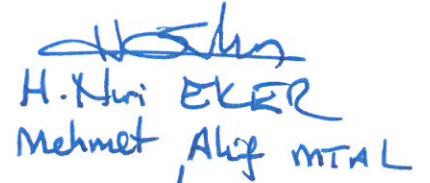 H. Nuri EKER
Mehmet Akif MTAL